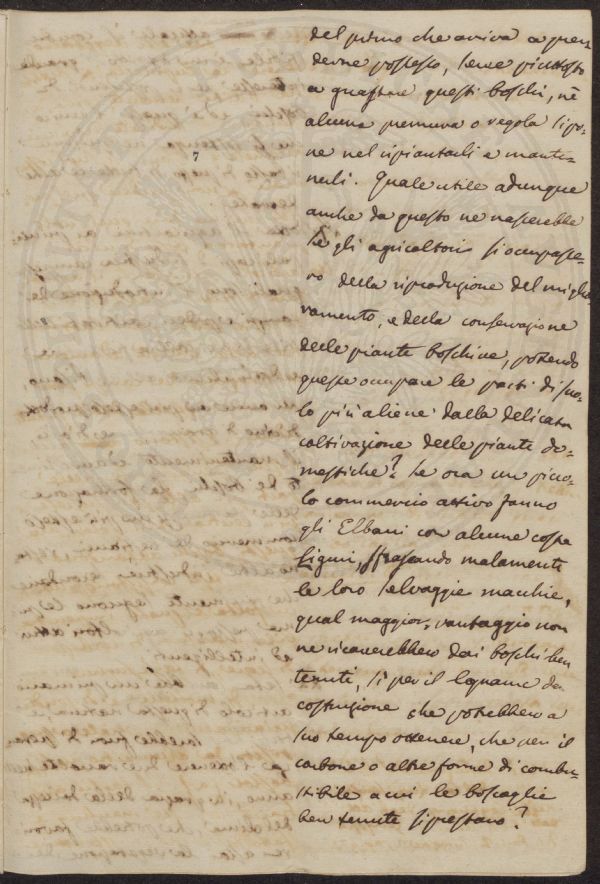 del primo che arriva a pren
derne possesso, serve piuttosto
a guastare questi boschi, nè
alcuna premura o regola si po-
ne nel ripiantarli e mante-
nerli. Quale utile adunque
anche da questo ne nascerebbe
se gli agricoltori si occupasse-
ro della riproduzione del miglio
ramento, e della conservazione
delle piante boschive, potendo
queste occupare le parti di suo-
lo più aliene dalla delicata
coltivazione delle piante do-
mestiche? Se ora un picco-
lo commercio attivo fanno
gli Elbani con alcune coste
Liguri, malamente
le loro selvaggie macchie,
qual maggior vantaggio non
ne ricaverebbero dai boschi ben
tenuti, sì per il legname da
costruzione che potrebbero a
suo tempo ottenere, che per il
carbone o altre forme di combu-
stibile a cui le boscaglie
ben tenute si prestano?